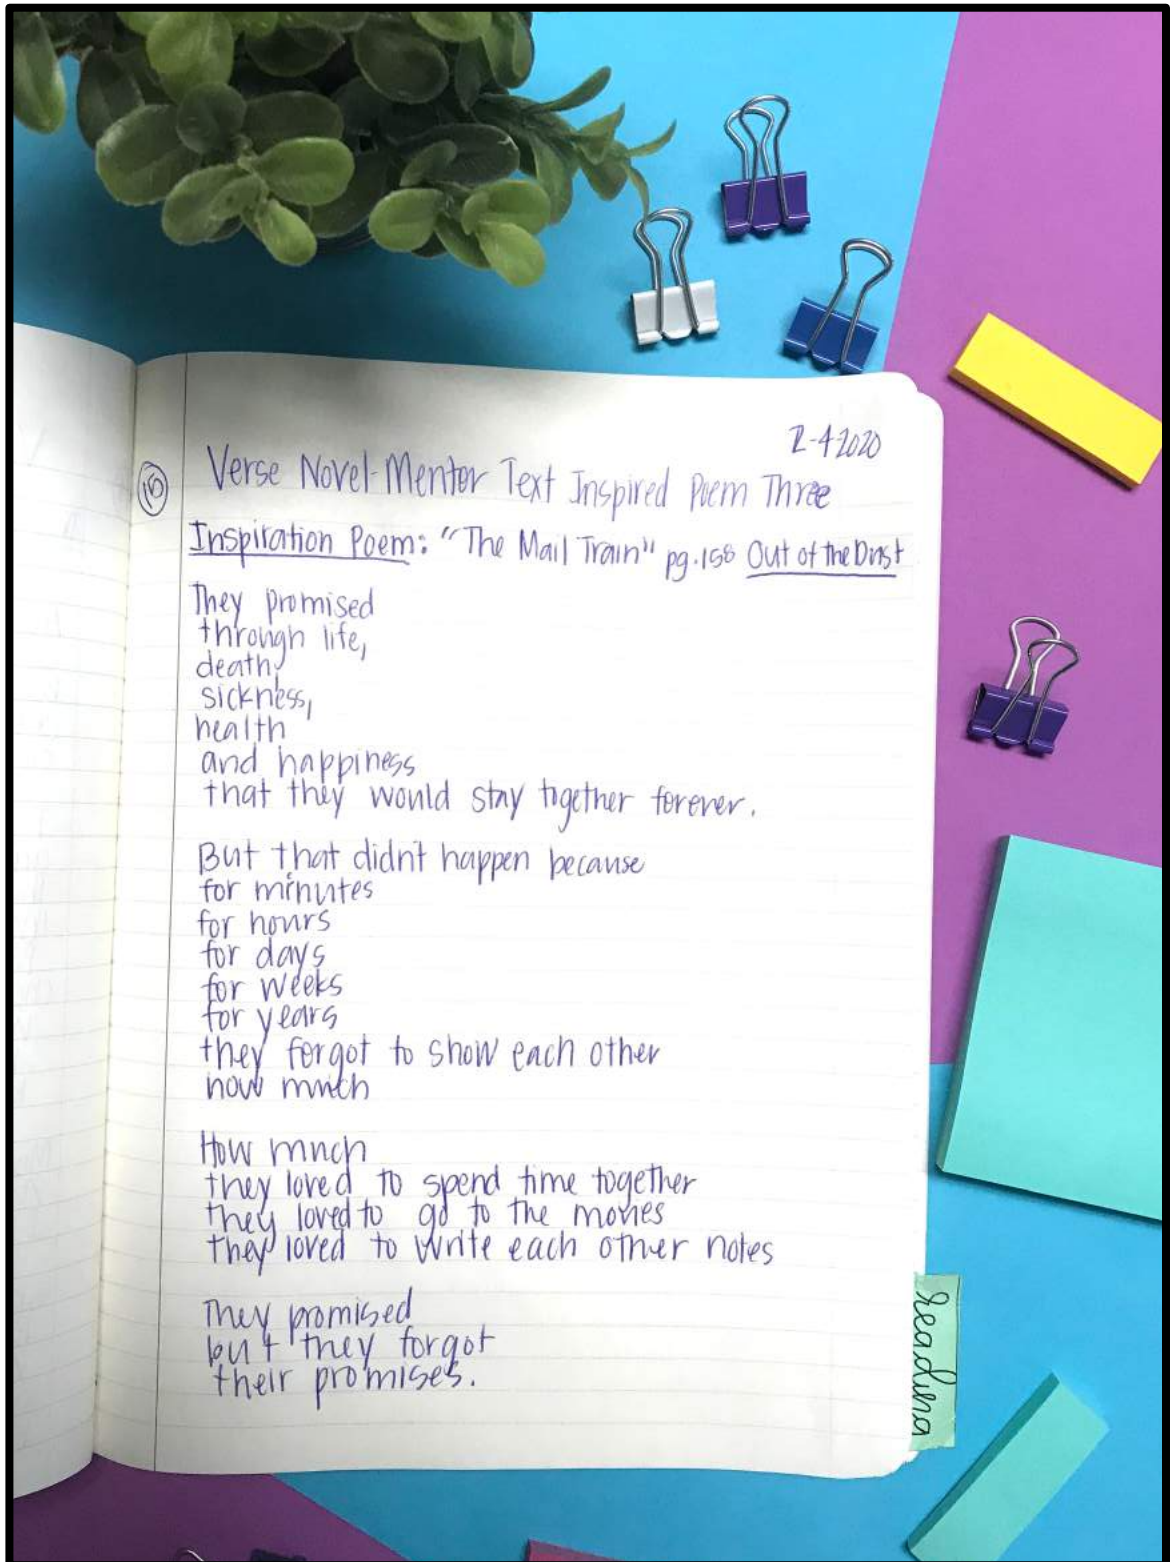 2-4-2020
Verse Novel-Mentor Text Inspired Poem Three
Inspiration Poem: "The Mail Train" pg.158 Out of the Dust
They promised
through life,
death,
sickness,
health
and happiness
that they would stay together forever.
But that didn't happen because
for minutes
for hours
for days
for weeks
for years
they forgot to show each other
how much
How much
they loved to spend time together
they loved to go to the movies
they loved to write each other notes
They promised
but they forgot
their promises.
reading